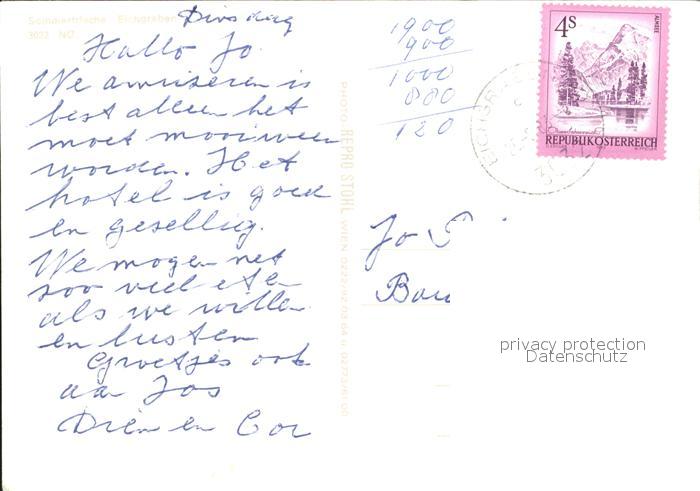 Dinsdag
3022 NÖ.
Hallo Jo.
We amuseren is
best alleen het
moet mooi weer
worden. Het
hotel is goed
en gesellig.
We mogen net
zoo veel eten
als we willen
en lusten
Groetjes ook
aan Jos
Dien en Cor
1900
900
1000
880
120
PHOTO REPRO STÖHL WIEN
4S
ALMSEE
REPUBLIK ÖSTERREICH
EICHGRABEN
Jo
privacy protection
Datenschutz